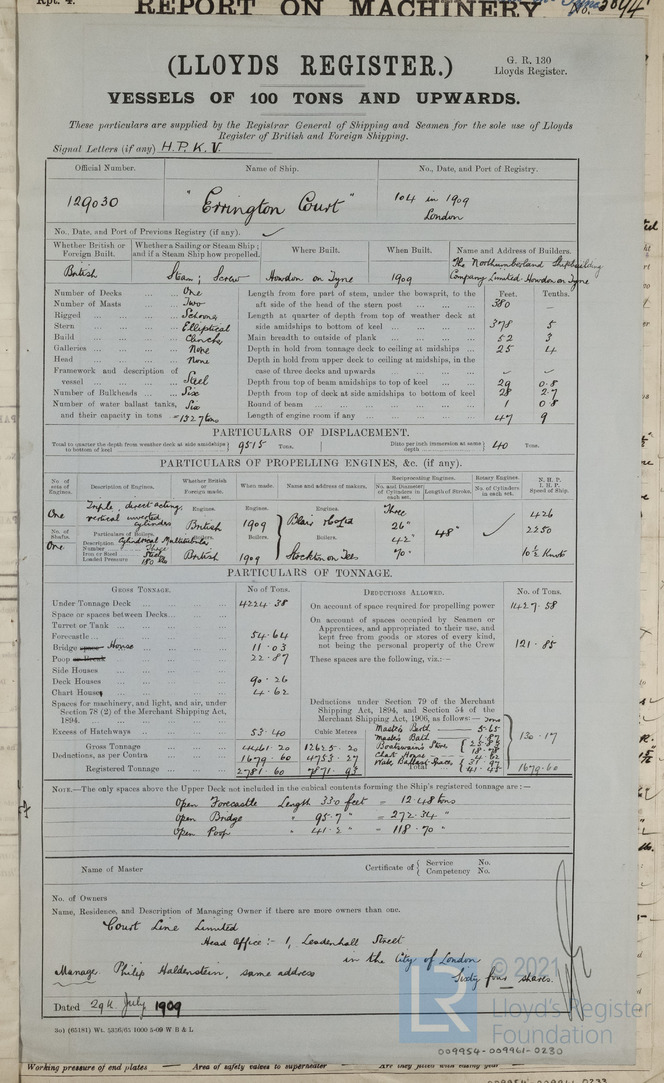 Rpt. 4.
REPORT ON MACHINERY.
No.
(LLOYDS REGISTER.)
G. R. 130
Lloyds Register.
VESSELS OF 100 TONS AND UPWARDS.
These particulars are supplied by the Registrar General of Shipping and Seamen for the sole use of Lloyds
Register of British and Foreign Shipping.
Signal Letters (if any) H.P.K.V.
Official Number. Name of Ship. No., Date, and Port of Registry.
129030 "Errington Court" 104 in 1909
London
No., Date, and Port of Previous Registry (if any).
Whether British or Foreign Built. Whether a Sailing or Steam Ship; and if a Steam Ship how propelled. Where Built. When Built. Name and Address of Builders.
British Steam; Screw Howdon on Tyne 1909 The Northumberland Shipbuilding
Company Limited. Howdon on Tyne
Feet. Tenths.
Number of Decks One Length from fore part of stem, under the bowsprit, to the
Number of Masts Two aft side of the head of the stern post 380 —
Rigged Schooner Length at quarter of depth from top of weather deck at
Stern Elliptical side amidships to bottom of keel 378 5
Build Clencher Main breadth to outside of plank 52 3
Galleries None Depth in hold from tonnage deck to ceiling at midships 25 4
Head None Depth in hold from upper deck to ceiling at midships, in the
Framework and description of case of three decks and upwards
vessel Steel Depth from top of beam amidships to top of keel 29 0.8
Number of Bulkheads Six Depth from top of deck at side amidships to bottom of keel 28 2.7
Number of water ballast tanks, Six Round of beam 1 0.8
and their capacity in tons =1327 tons Length of engine room if any 47 9
PARTICULARS OF DISPLACEMENT.
Total to quarter the depth from weather deck at side amidships to bottom of keel 9515 Tons. Ditto per inch immersion at same depth 40 Tons.
PARTICULARS OF PROPELLING ENGINES, &c. (if any).
No. of sets of Engines. Description of Engines. Whether British or Foreign made. When made. Name and address of makers. Reciprocating Engines. Rotary Engines. N. H. P.
No. and Diameter of Cylinders in each set. Length of Stroke. No. of Cylinders in each set. I. H. P.
Speed of Ship.
One Triple, direct acting, Engines. Engines. Engines. Three 426
vertical inverted cylinders British 1909 Blair & Co Ld 26" 48" 2250
No. of Shafts. Particulars of Boilers. Boilers. Boilers. Boilers. 42"
One Description Cylindrical Multitubular
Number Three
Iron or Steel Steel British 1909 Stockton on Tees 70" 10½ Knots
Loaded Pressure 180 lbs
PARTICULARS OF TONNAGE.
GROSS TONNAGE. No of Tons. DEDUCTIONS ALLOWED. No. of Tons.
Under Tonnage Deck 4224.38 On account of space required for propelling power 1427.58
Space or spaces between Decks On account of spaces occupied by Seamen or
Turret or Tank Apprentices, and appropriated to their use, and
Forecastle 54.64 kept free from goods or stores of every kind,
Bridge space House 11.03 not being the personal property of the Crew 121.85
Poop or Break 22.87 These spaces are the following, viz.:—
Side Houses
Deck Houses 90.26
Chart House 4.62
Spaces for machinery, and light, and air, under Deductions under Section 79 of the Merchant
Section 78 (2) of the Merchant Shipping Act, Shipping Act, 1894, and Section 54 of the
1894. Merchant Shipping Act, 1906, as follows:— Tons
Excess of Hatchways 53.40 Cubic Metres Master's Berth 5.65 130.17
Gross Tonnage 4461.20 12625.20
Deductions, as per Contra 1679.60 4753.27 Boatswain's Store Chart House 4.62
Registered Tonnage 2781.60 7871.93 Water Ballast Spaces Total 1679.60
NOTE.—The only spaces above the Upper Deck not included in the cubical contents forming the Ship's registered tonnage are:—
Open Forecastle Length 33.0 feet = 12.48 tons
Open Bridge " 95.7 " = 272.34 "
Open Poop " 41.2 " = 118.70 "
Name of Master Certificate of { Service No.
Competency No.
No. of Owners
Name, Residence, and Description of Managing Owner if there are more owners than one.
Court Line Limited
Head Office:- 1, Leadenhall Street
in the City of London
Manager Philip Haldenstein, same address
Sixty four shares.
Dated 29th July 1909
© 2021
Lloyd's Register
Foundation
LR
3o) (65181) Wt. 5336/65 1000 5-09 W B & L
009954-009961-0230
Working pressure of end plates Area of safety valves to superheater Are they fitted with easing gear